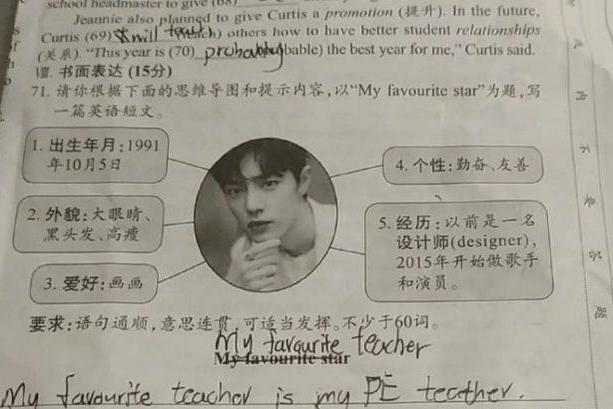 school headmaster to give (68)
Jeannie also planned to give Curtis a promotion (提升). In the future,
Curtis (69) will teach (teach) others how to have better student relationships
(关系). "This year is (70) probably (probable) the best year for me," Curtis said.
Ⅷ. 书面表达 (15分)
71. 请你根据下面的思维导图和提示内容,以"My favourite star"为题,写
一篇英语短文。
1. 出生年月:1991
年10月5日
2. 外貌:大眼睛、
黑头发、高瘦
3. 爱好:画画
4. 个性:勤奋、友善
5. 经历:以前是一名
设计师(designer),
2015年开始做歌手
和演员。
要求:语句通顺,意思连贯,可适当发挥。不少于60词。
My favourite teacher
My favourite star
My favourite teacher is my PE teather.
内
不
答
题